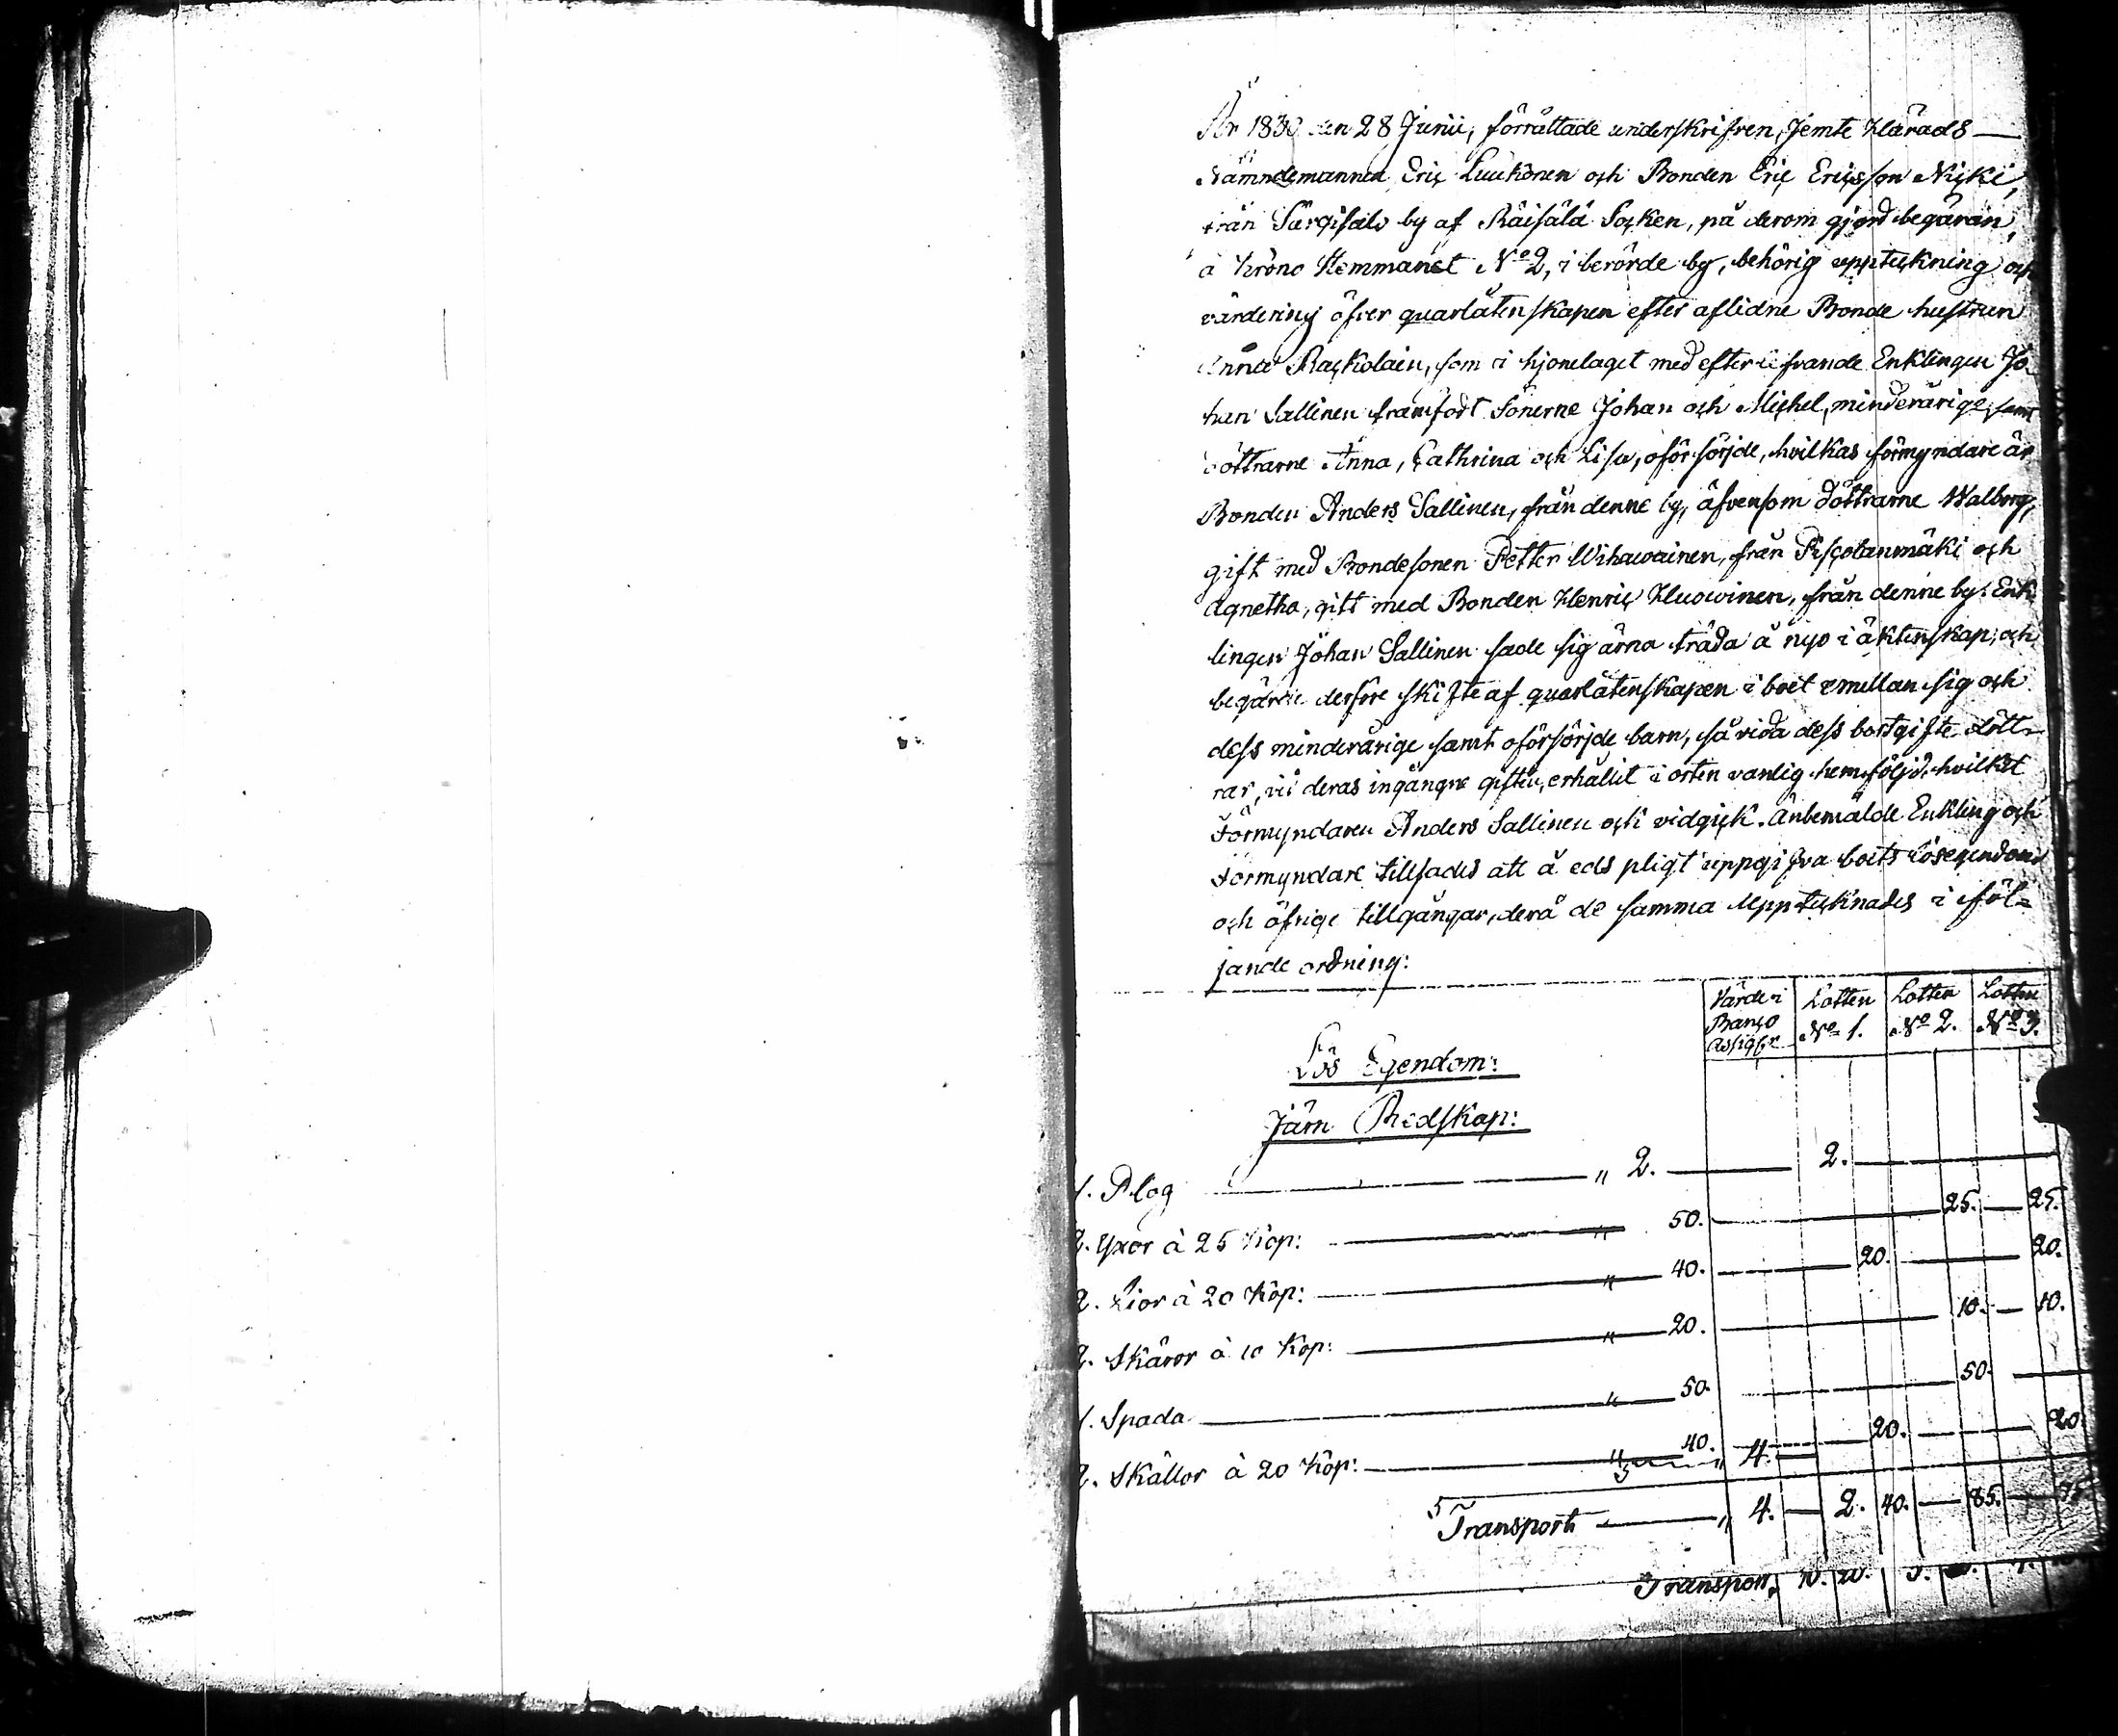 År 1830 den 28 Junii, förrättade underskrifven, Jemte Härads
Nämndemannen Eric Luukonen och Bonden Eric Ericsson Nicki,
från Särgisalo by af Räisälä Socken, på derom gjord begäran,
å Krono Hemmanet No 2, i berörde by, behörig uppteckning och
värdering öfver quarlåtenskapen efter aflidne Bonde hustrun
Anna Raskolain, som i hjonelaget med efterlefvande Enklingen Jo-
han Sallinen framfödt Sönerne Johan och Michel, minderårige, samt
döttrarne Anna, Cathrina och Lisa, oförsörjde, hvilkas förmyndare är
Bonden Anders Sallinen, från denne by, äfvensom döttrarne Walborg,
gift med Bondesonen Petter Wihawainen, från Piscolanmäki och
Agnetha, gift med Bonden Henric Huowinen, från denne by. Enk-
lingen Johan Sallinen sade sig ärna träda å nyo i äktenskap, och
begärde derföre skifte af quarlåtenskapen i boet emellan sig och
dess minderårige samt oförsörjde barn, så vida dess bortgifte dött-
rar, vid deras ingångne giften, erhållit i orten vanlig hemföljd, hvilket
Förmyndaren Anders Sallinen och vidgick. Anbemälde Enkling och
Förmyndare tillsades att å eds pligt uppgifva boets lösegendom
och öfrige tillgångar, derå de samma upptecknades i föl-
jande ordning:
Värde i Banco Assigr Lotten No 1. Lotten No 2. Lotten No 3.
Lös Egendom:
Järn Redskap:
1. Plog " 2. 2.
2. Yxor à 25 Kop: " 50. 25. 25.
2. Lior à 20 Kop: " 40. 20. 20.
2. Skäror à 10 Kop: " 20. 10. 10.
1. Spada " 50. 50.
2. Skällor à 20 Kop: " 40. 4. 20. 20.
Transport " 4. 2. 40. 85. 75
Transport